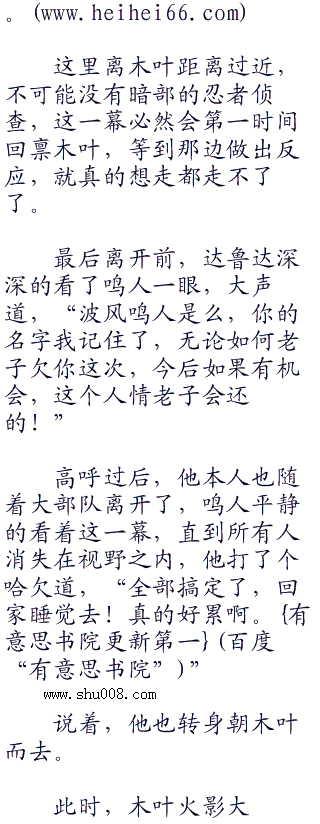 。(www.heihei66.com)
这里离木叶距离过近，
不可能没有暗部的忍者侦
查，这一幕必然会第一时间
回禀木叶，等到那边做出反
应，就真的想走都走不了
了。
最后离开前，达鲁达深
深的看了鸣人一眼，大声
道，“波风鸣人是么，你的
名字我记住了，无论如何老
子欠你这次，今后如果有机
会，这个人情老子会还
的！”
高呼过后，他本人也随
着大部队离开了，鸣人平静
的看着这一幕，直到所有人
消失在视野之内，他打了个
哈欠道，“全部搞定了，回
家睡觉去！真的好累啊。{有
意思书院更新第一}(百度
“有意思书院”)”
www.shu008.com
说着，他也转身朝木叶
而去。
此时，木叶火影大